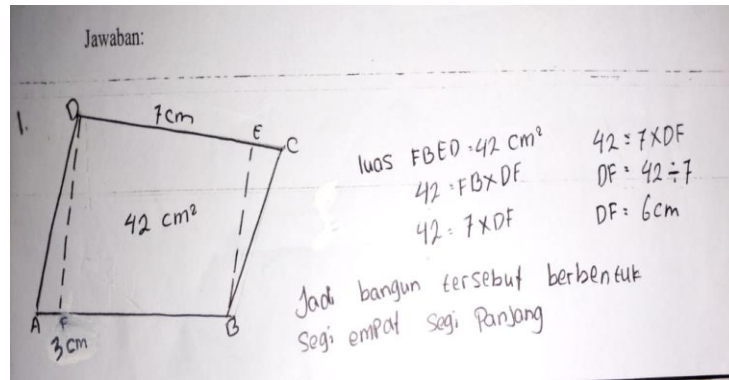 Jawaban:
1.
D
7cm
E
C
42 cm²
A
F
B
3 cm
luas FBED = 42 cm²
42 = FB x DF
42 = 7 x DF
42 = 7 x DF
DF = 42 ÷ 7
DF = 6cm
Jadi bangun tersebut berbentuk
Segi empat segi Panjang